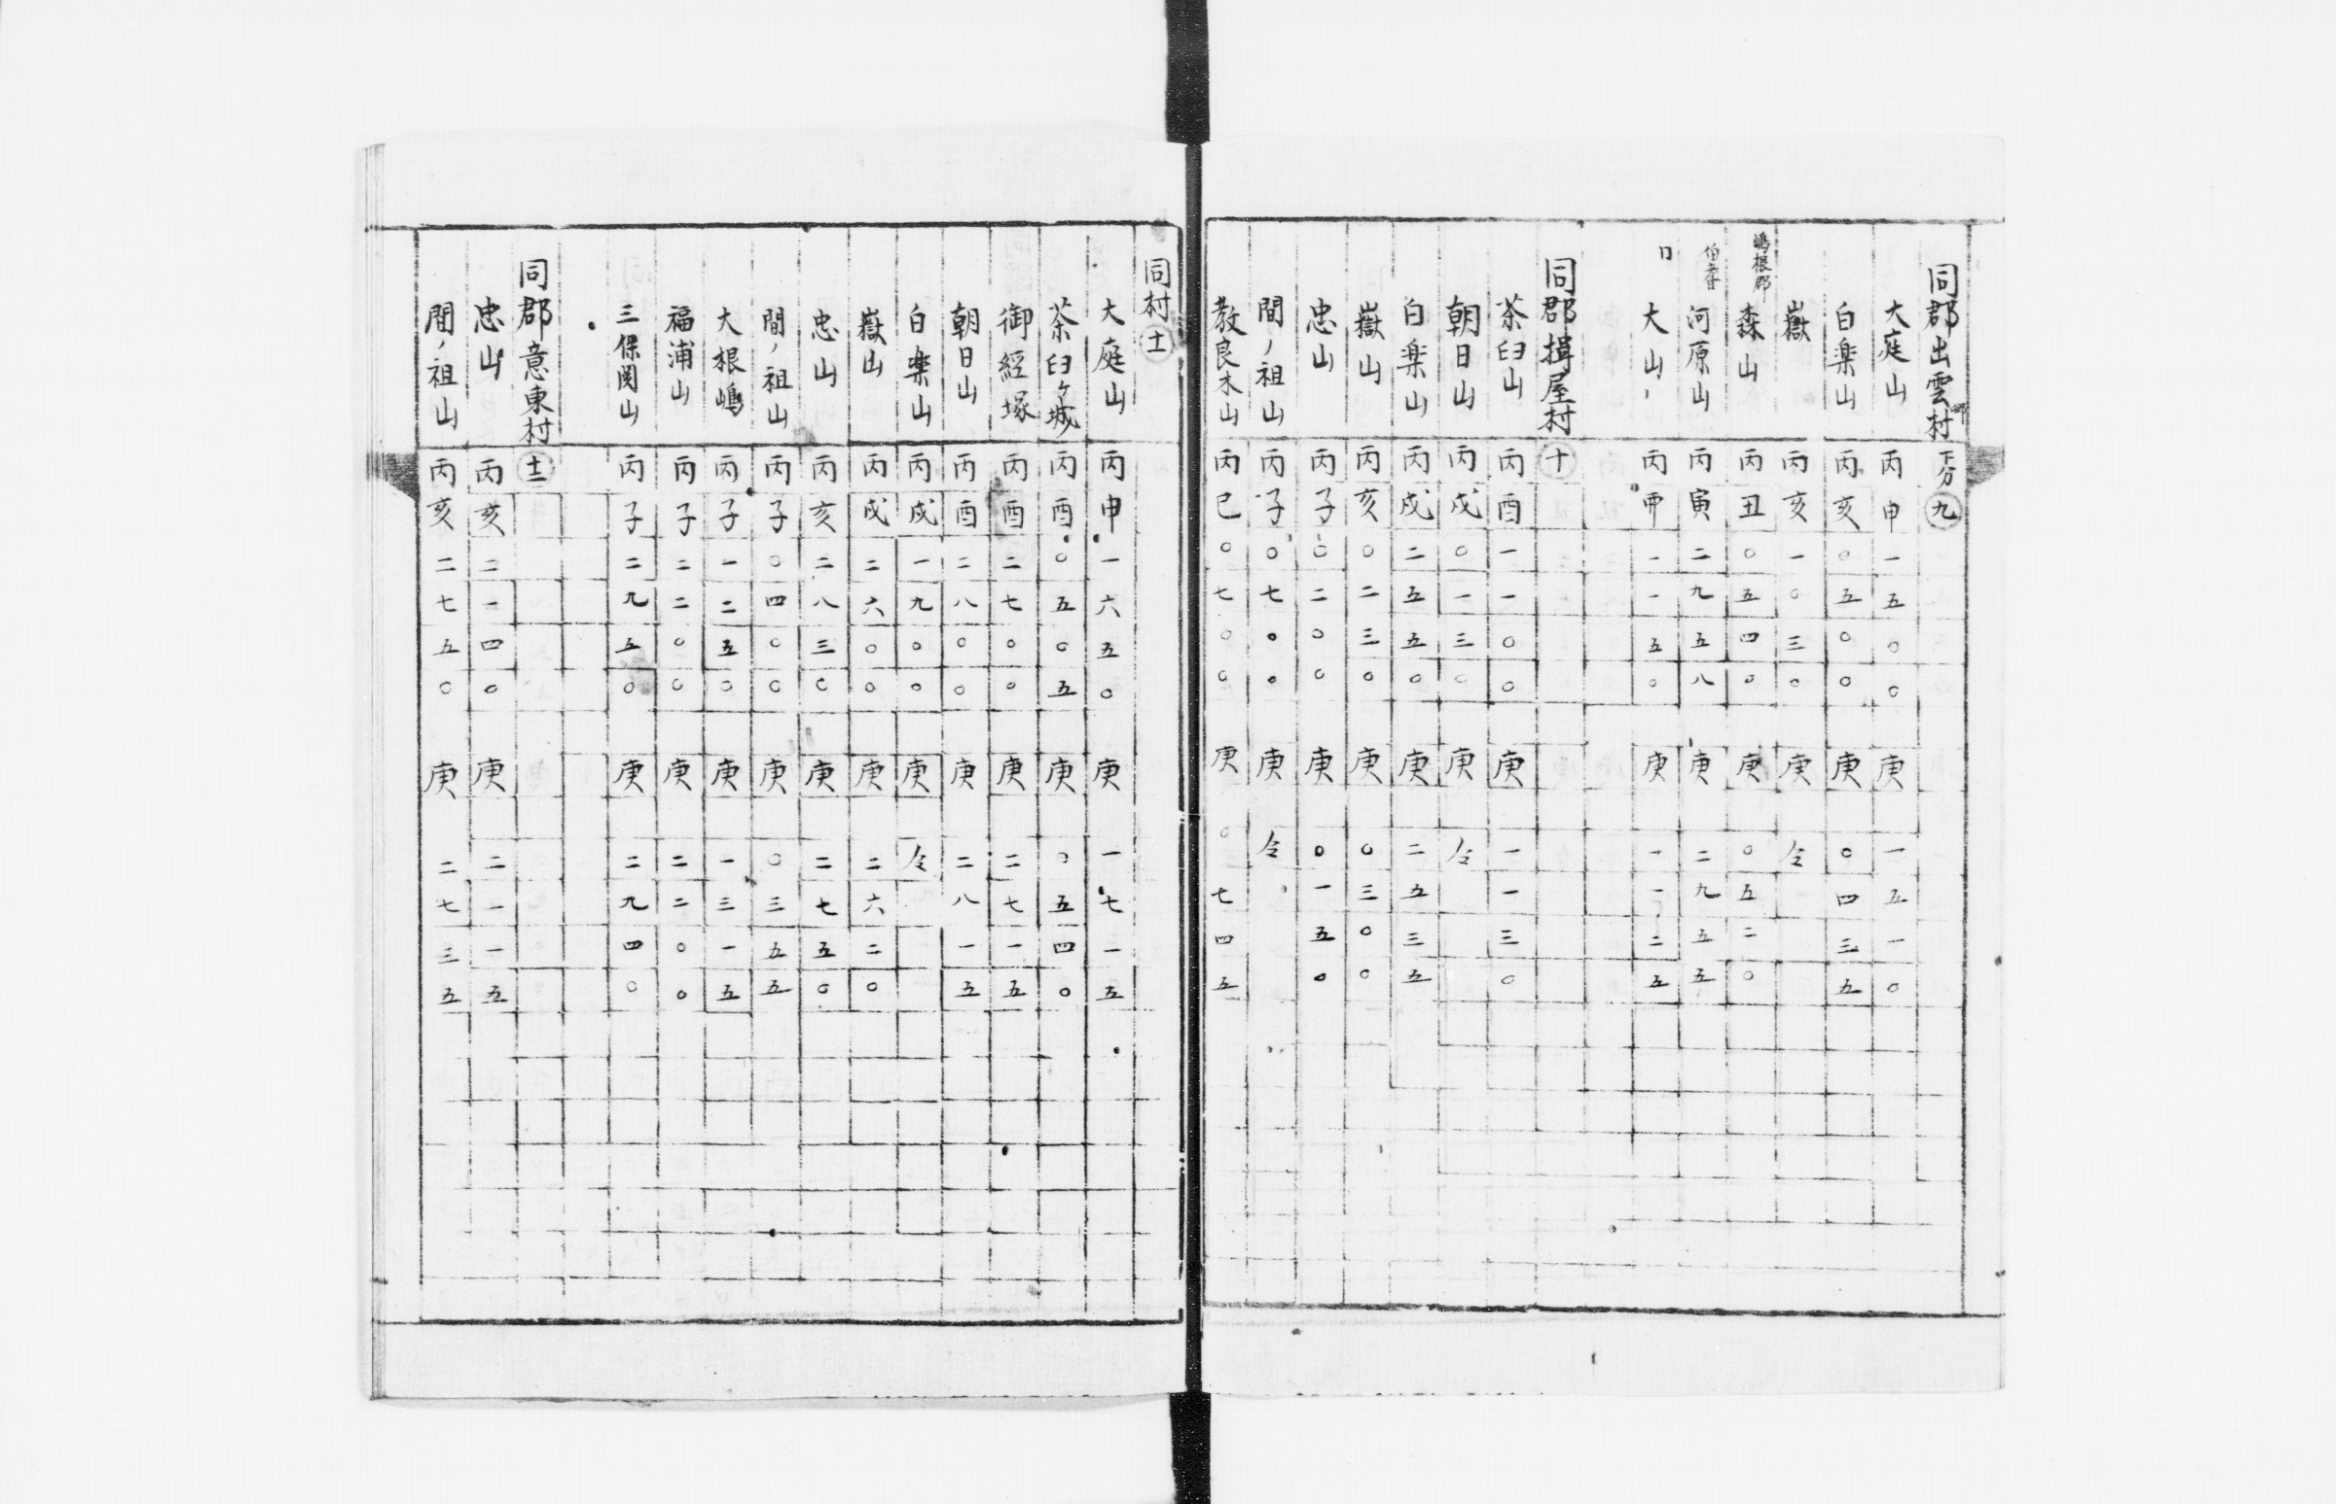 同郡出雲郷村 下分 九
大庭山 丙申一五〇〇 庚一五一〇
白楽山 丙亥〇五〇〇 庚〇四三五
嶽 丙亥一〇三〇 庚仝
嶋根郡 森山 丙丑〇五四〇 庚〇五二〇
伯耆 河原山 丙寅二九五八 庚二九五五
大山 丙 一一五〇 庚一一二五
同郡揖屋村 十
茶臼山 丙酉一一〇〇 庚一一三〇
朝日山 丙戌〇一三〇 庚仝
白楽山 丙戌二五五〇 庚二五三五
嶽山 丙亥〇二三〇 庚〇三〇〇
忠山 丙子〇二〇〇 庚〇一五〇
間ノ祖山 丙子〇七〇〇 庚仝
教良木山 丙巳〇七〇〇 庚〇七四五
同村 十一
大庭山 丙申一六五〇 庚一七一五
茶臼ケ城 丙酉〇五〇五 庚〇五四〇
御経塚 丙酉二七〇〇 庚二七一五
朝日山 丙酉二八〇〇 庚二八一五
白楽山 丙戌一九〇〇 庚仝
嶽山 丙戌二六〇〇 庚二六二〇
忠山 丙亥二八三〇 庚二七五〇
間ノ祖山 丙子〇四〇〇 庚〇三五五
大根嶋 丙子一二五〇 庚一三一五
福浦山 丙子二二〇〇 庚二二〇〇
三保関山 丙子二九五〇 庚二九四〇
同郡意東村 十二
忠山 丙亥二一四〇 庚二一一五
間ノ祖山 丙亥二七五〇 庚二七三五